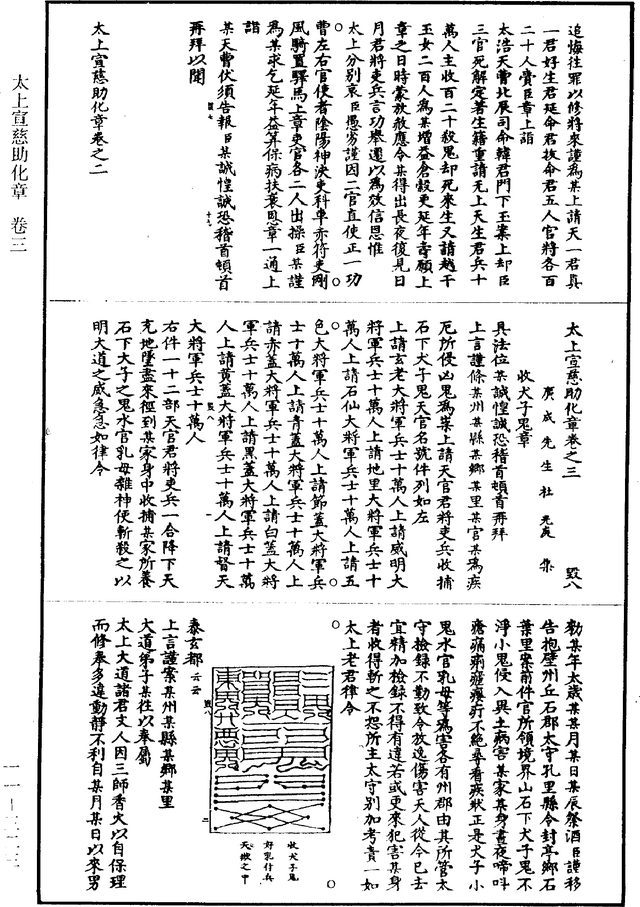 太上宣慈助化章 卷三
一一—三二三
追悔往罪以修將來謹為某上請天一君真
一君好生君延命君救命君五人官將各百
二十人賫臣章上詣
太浩天曹北辰司命韓君門下玉案上却臣
三官死解定著生籍重請无上天生君兵十
萬人主收百二十殺鬼却死來生又請越千
玉女二百人為某增益倉穀更延年壽願上
章之日時蒙放赦應令某得出長夜復見日
月君將吏兵言功舉遷以為效信恩惟
太上分別哀臣愚劣謹因二官直使正一功
曹左右官使者陰陽神決吏科車赤符吏剛
風騎置驛馬上章吏官各二人出操臣某謹
為某求乞延年益算保病扶衰恩章一通上
詣
某天曹伏須告報臣某誠惶誠恐稽首頓首
再拜以聞
太上宣慈助化章卷之二
太上宣慈助化章卷之三 毀八
廣成先生杜光庭集
收犬子鬼章
具法位某誠惶誠恐稽首頓首再拜
上言謹條某州某縣某鄉某里某官某為疾
厄所侵凶鬼為祟上請天官君將吏兵收捕
石下犬子鬼天官名號件列如左
上請玄老大將軍兵士十萬人上請威明大
將軍兵士十萬人上請地里大將軍兵士十
萬人上請石仙大將軍兵士十萬人上請五
色大將軍兵士十萬人上請節蓋大將軍兵
士十萬人上請青蓋大將軍兵士十萬人上
請赤蓋大將軍兵士十萬人上請白蓋大將
軍兵士十萬人上請黑蓋大將軍兵士十萬
人上請黃蓋大將軍兵士十萬人上請督天
大將軍兵士十萬人
右件一十二部天官君將吏兵一合降下天
充地墮盡來徑到某家身中收捕某家所養
石下犬子之鬼水官乳母雜神使斬殺之以
明大道之威急急如律令
勑某年太歲某某月某日某辰祭酒臣謹移
告抱壁州丘石郡太守孔里縣令封亭鄉石
葉里案前件官所領境界山石下犬子鬼不
淨小鬼侵入異土病害某家某身晝夜啼呌
瘡痛痢瘧癢疔不絕尋看疾狀正是犬子小
鬼水官乳母等為害各有州郡由其所管太
守撿錄不勤致令放逸傷害天人從今已去
宜精加撿錄不得有違若或更來犯害某身
者收得斬之不怨所主太守別加考責一如
太上老君律令
收犬子鬼
好乳什兵
天獄之中
泰玄都云云
上言謹案某州某縣某鄉某里
大道弟子某往以奉屬
太上大道諸君丈人因三師香火以自保理
而修奉多違動靜不利自某月某日以來男